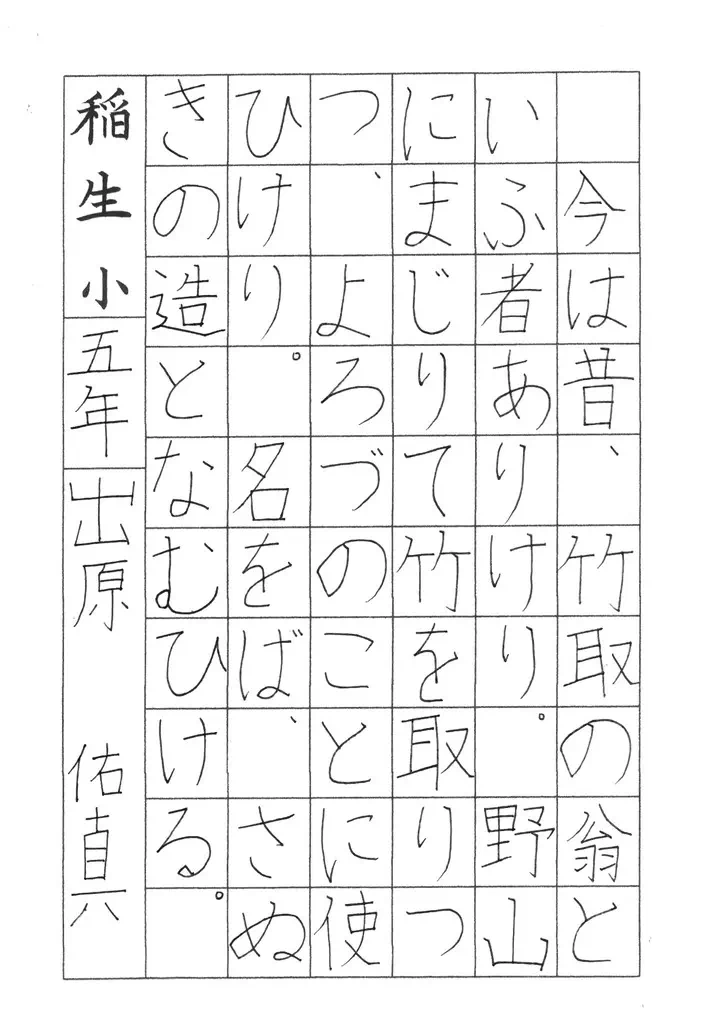 今は昔、竹取の翁と
いふ者ありけり。野山
にまじりて竹を取りつ
つ、よろづのことに使
ひけり。名をば、さぬ
きの造となむひける。
稲生小 五年 出原 佑真